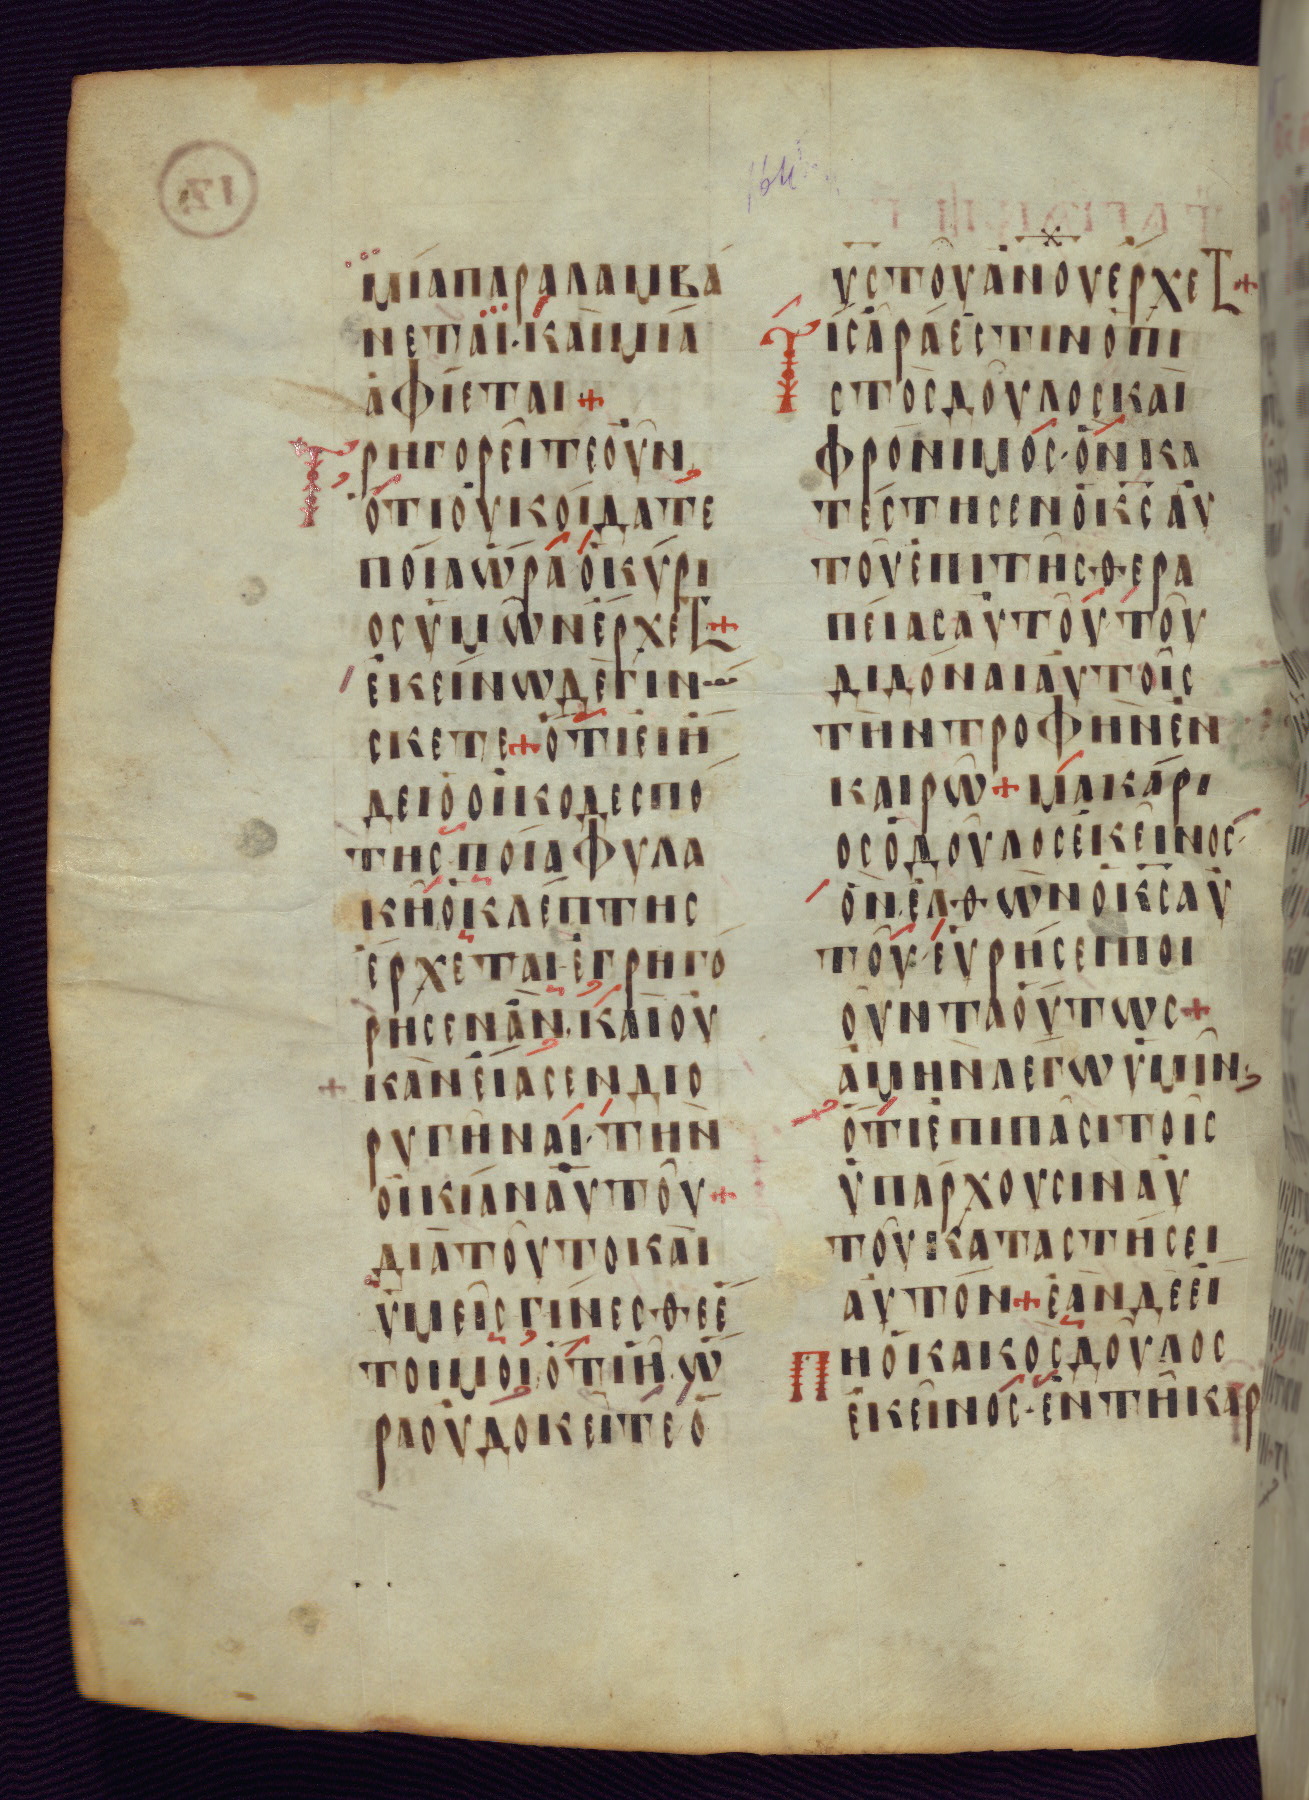 μία παραλαμβά
νεται· καὶ μία
ἀφίεται +
Γρηγορεῖτε οὖν,
ὅτι οὐκ οἴδατε
ποία ὥρα ὁ κύρι
ος ὑμῶν ἔρχεται +
ἐκείνω δὲ γινώ
σκετε + ὅτι εἰ ἤ
δει ὁ οἰκοδεσπό
της ποία φυλα
κῇ ὁ κλέπτης
ἔρχεται· ἐγρηγό
ρησεν ἄν. καὶ οὐ
κ ἂν εἴασεν διο
ρυγῆναι· τὴν
οἰκίαν αὐτοῦ +
διὰ τοῦτο καὶ
ὑμεῖς γίνεσθε ἕ
τοιμοι ὅτι ἧ ὥ
ρα οὐ δοκεῖτε ὁ
υς τοῦ ανου ἔρχεται +
Τίς ἄρα ἐστὶν ὁ πι
στὸς δοῦλος καὶ
φρόνιμος· ὃν κα
τέστησεν ὁ κς αὐ
τοῦ ἐπὶ τῆς θερα
πείας αὐτοῦ τοῦ
διδόναι αὐτοῖς
τὴν τροφὴν ἐν
καιρῶ + μακάρι
ος ὁ δοῦλος ἐκεῖνος·
ὃν ἐλθὼν ὁ κς αὐ
τοῦ· εὑρήσει ποι
οῦντα οὕτως +
ἀμὴν λέγω ὑμῖν,
ὅτι ἐπὶ πᾶσι τοῖς
ὑπάρχουσιν αὐ
τοῦ καταστήσει
αὐτόν + ἐὰν δὲ εἴ
πη ὁ κακὸς δοῦλος
ἐκεῖνος· ἐν τῆ καρ